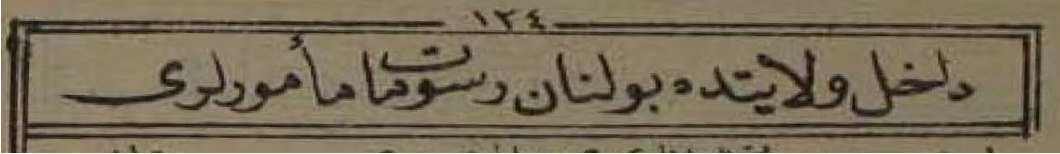 ١٣٤
داخل ولايتده بولنان رسومات مأمورلری